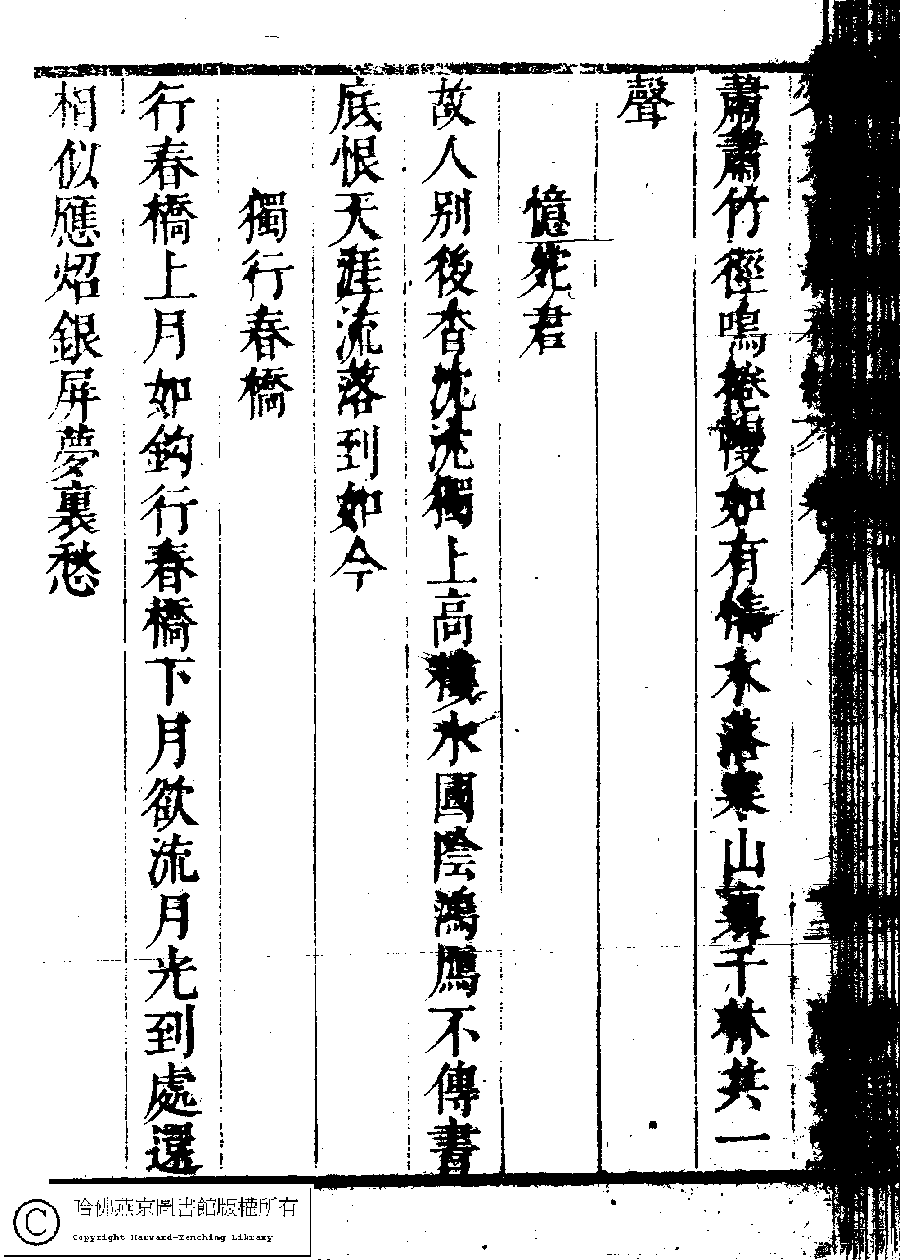 肅肅竹徑鳴捲幔如有情木落寒山裏千林共一
聲
憶
君
故人別後杳沈沈獨上高樓水國陰鴻鴈不傳書
底恨天涯流落到如今
獨行春橋
行春橋上月如鈎行春橋下月欲流月光到處還
相似應炤銀屏夢裏愁
哈佛燕京圖書館版權所有
Copyright Harvard-Yenching Library